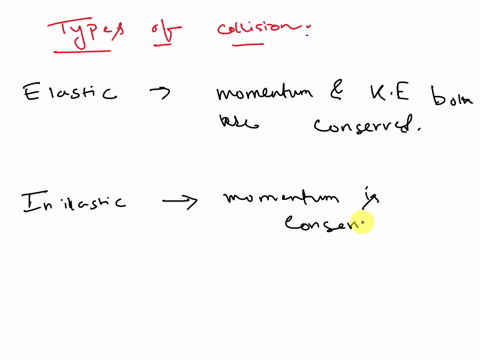 Types of collision:
Elastic → momentum & K.E both
are conserved.
Inilastic → momentum is
Conser